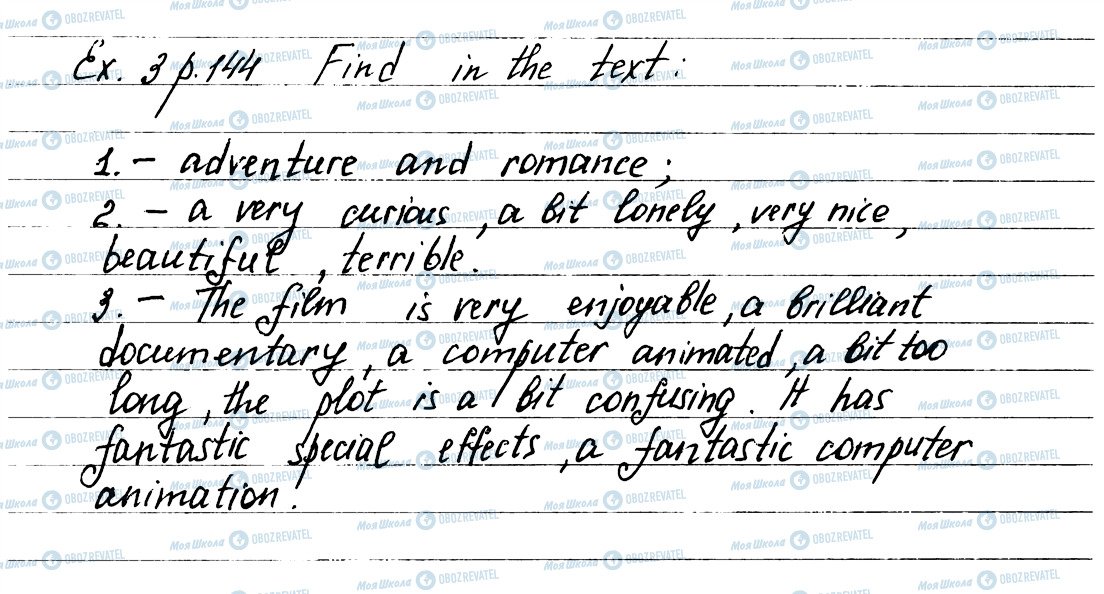 Ex. 3 p. 144 Find in the text:
1. – adventure and romance;
2. – a very curious, a bit lonely, very nice,
beautiful, terrible.
3. – The film is very enjoyable, a brilliant
documentary, a computer animated, a bit too
long, the plot is a bit confusing. It has
fantastic special effects, a fantastic computer
animation.